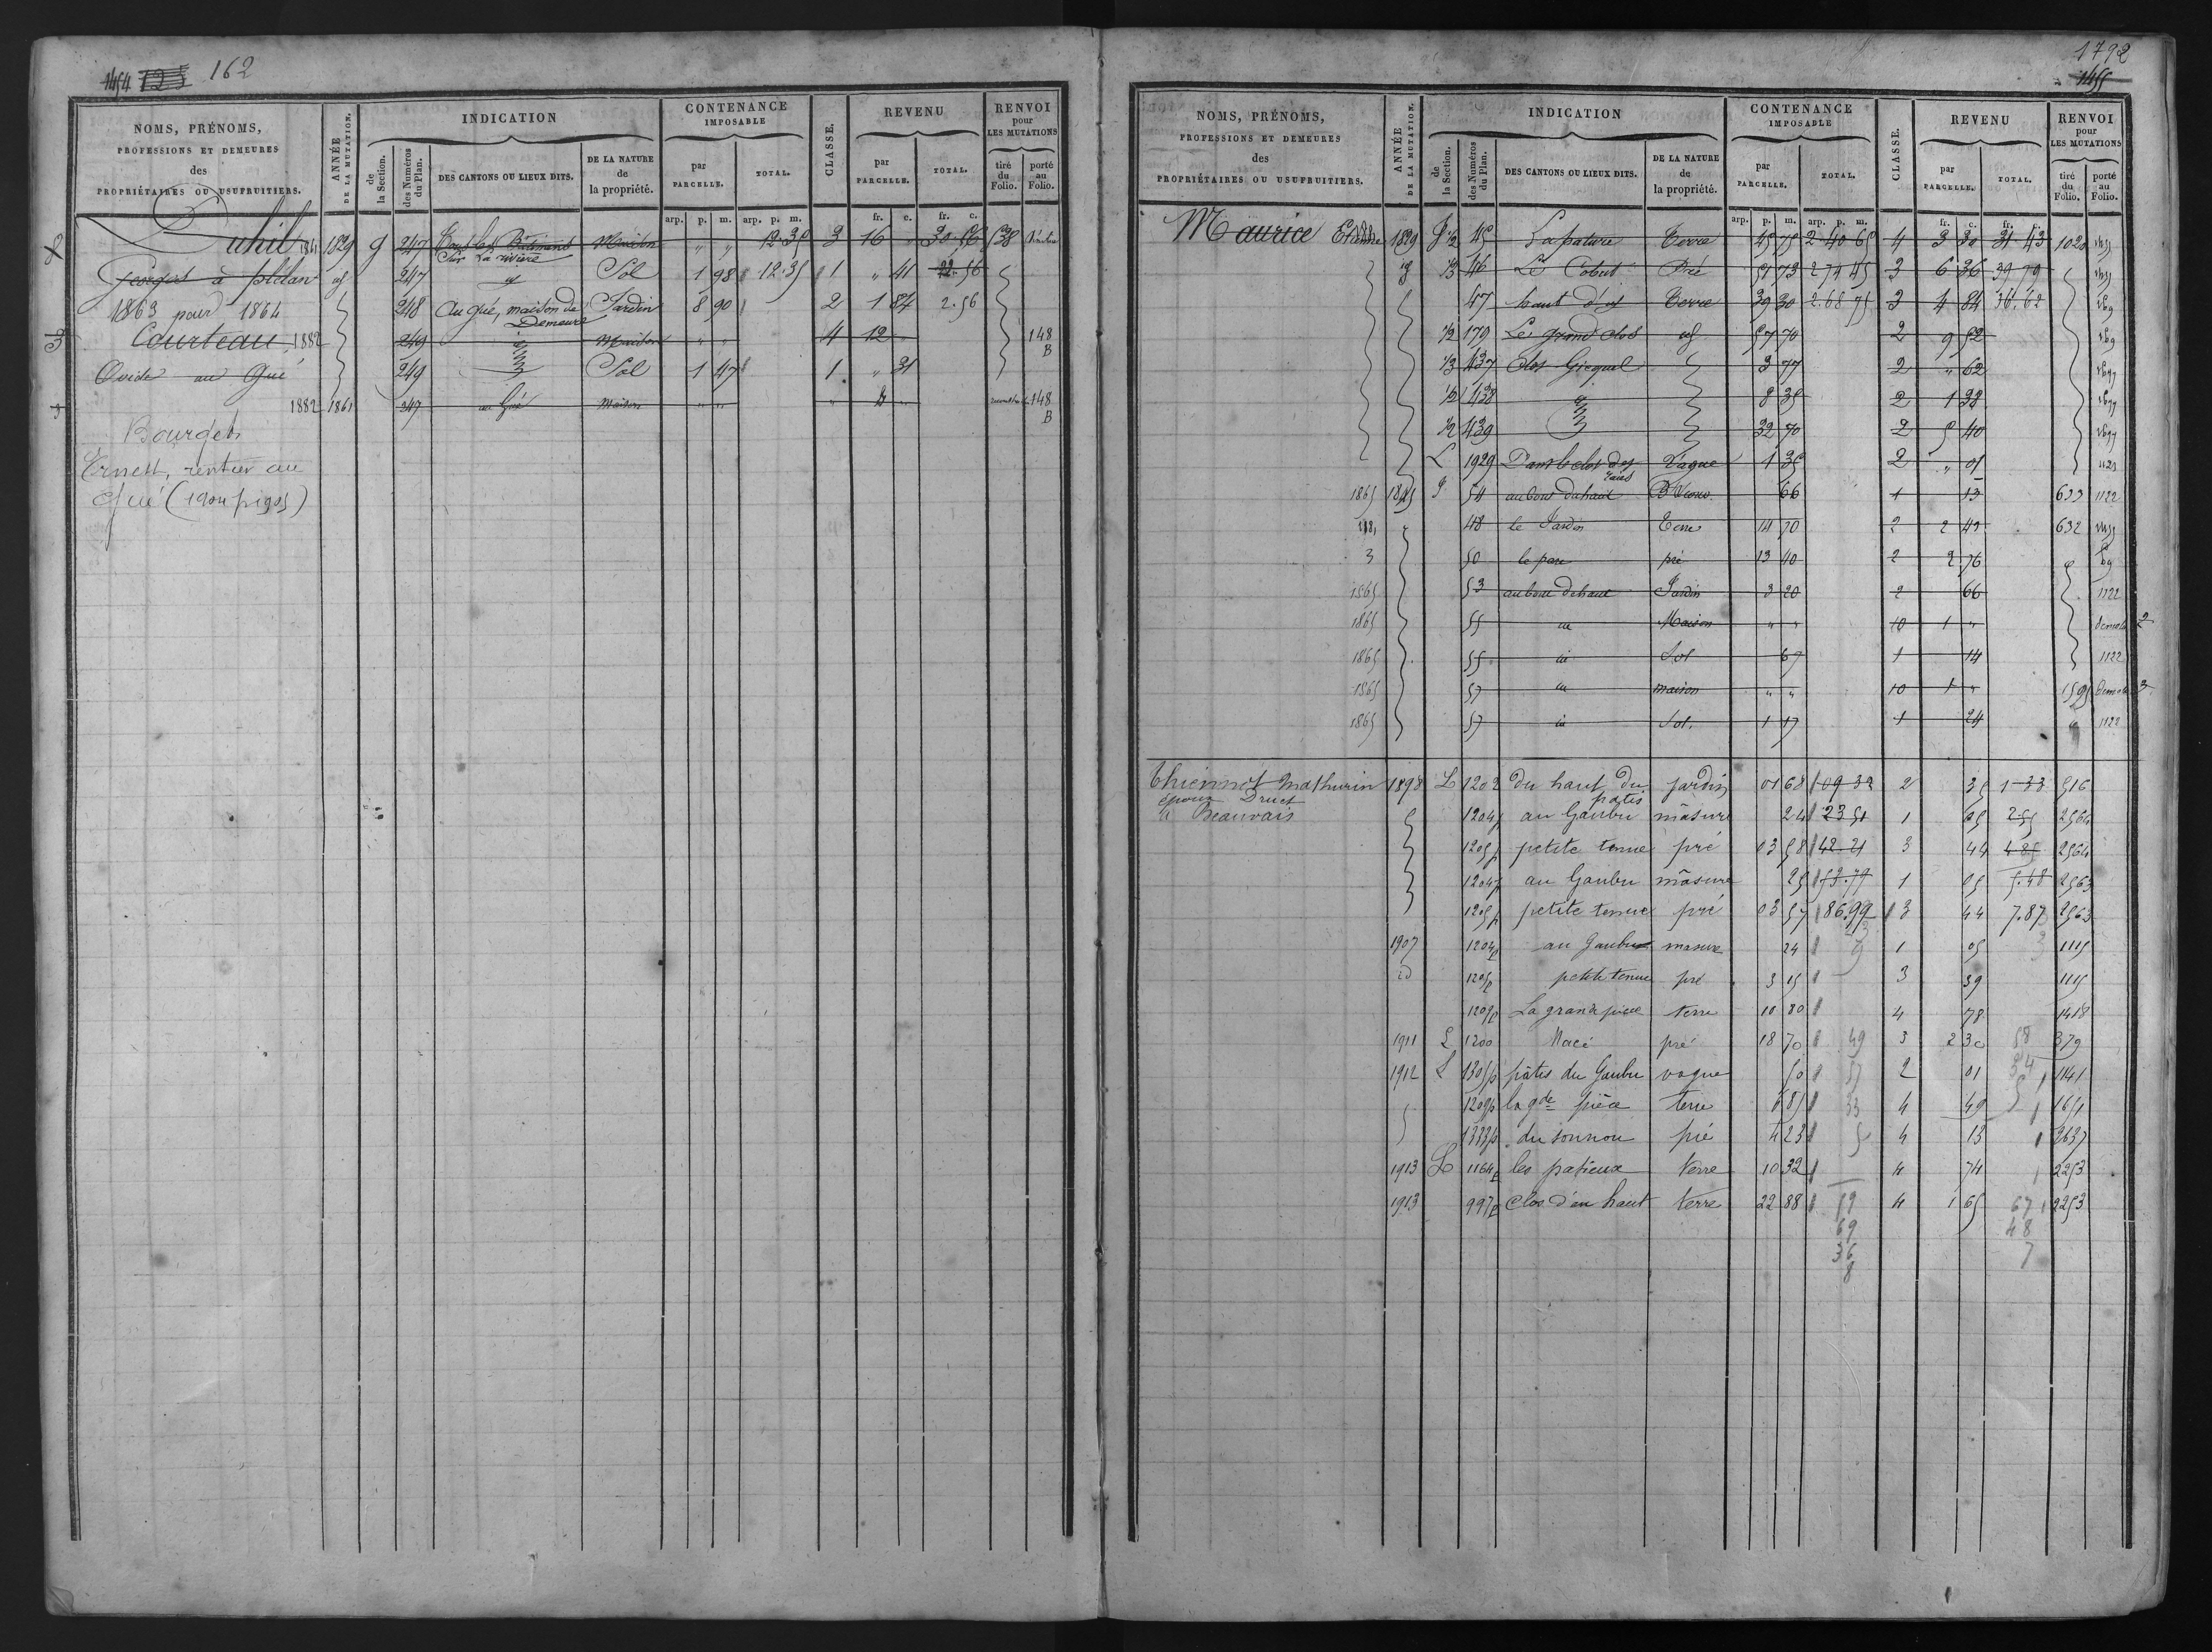 1454 123 162
NOMS, PRÉNOMS,
PROFESSIONS ET DEMEURES
des
PROPRIÉTAIRES OU USUFRUITIERS.
ANNÉE
DE LA MUTATION.
INDICATION
de
la Section.
des Numéros
du Plan.
DES CANTONS OU LIEUX DITS.
DE LA NATURE
de
la propriété.
CONTENANCE
IMPOSABLE
par
PARCELLE.
TOTAL.
CLASSE.
REVENU
par
PARCELLE.
TOTAL.
RENVOI
pour
LES MUTATIONS
tiré
du
Folio.
porté
au
Folio.
arp. p. m. arp. p. m. fr. c. fr. c.
Duhil 1829 g 247 Tous les Bâtiments Maison " " 12.35 3 16 " 30.56 538
Sur La rivière
Georges à plélan id 247 id Sol 1 98 12.35 1 " 41 22.56
1863 pour 1864 248 Au gué, maison de Jardin 8 90 2 1 84 2.56
Demeure
Courteau 1882 249 Maison " " 4 12 " 148
B
Ovide au Gué 249 Sol 1 47 1 " 31
1882 1861 247 au Gué Maison " " " " 148
B
Bourgeb
Ernest, rentier au
Gué (1904 p 1905)
1792
1455
NOMS, PRÉNOMS,
PROFESSIONS ET DEMEURES
des
PROPRIÉTAIRES OU USUFRUITIERS.
ANNÉE
DE LA MUTATION.
INDICATION
de
la Section.
des Numéros
du Plan.
DES CANTONS OU LIEUX DITS.
DE LA NATURE
de
la propriété.
CONTENANCE
IMPOSABLE
par
PARCELLE.
TOTAL.
CLASSE.
REVENU
par
PARCELLE.
TOTAL.
RENVOI
pour
LES MUTATIONS
tiré
du
Folio.
porté
au
Folio.
arp. p. m. arp. p. m. fr. c. fr. c.
Maurice Etienne 1829 g 1/2 45 La pature Terre 45 75 2 40 65 4 3 30 31 43 1020
id 1/3 46 Le Cobut Pré 51 73 2 74 45 3 6 36 39 79
47 haut d'id Terre 39 30 2.68 75 3 4 84 36.62
1/2 179 Le grand clos id 57 70 2 9 52
1/3 437 Clos Gicquel 3 77 2 " 62
1/2 438 8 35 2 1 38
1/2 439 32 70 2 5 40
L 1929 Dans le clos des Vague 1 35 2 " 01 1123
1865 1845 g 54 au bout du haut 66 1 13 633 1122
48 le Jardin Terre 14 70 2 2 43 632
3 50 le parc pré 13 40 2 2 76
1865 53 au bout du haut Jardin 3 20 2 66 1122
1865 55 id Maison " " 10 1 " 2
1865 55 id Sol 67 1 14 1122
1865 57 id maison " " 10 1 " 1595 3
1865 57 id Sol. 1 17 1 24 1122
Thiennot Mathurin 1898 L 1202 du haut du jardin 01 68 09 32 2 35 1 33 516
époux Druet patis
à Beauvais 1204p au Gaubu mâsure 24 23 51 1 05 2.55 2564
1205p petite tenue pré 03 58 42.21 3 44 4 85 2564
1204p au Gaubu mâsure 25 53.79 1 05 5.48 2563
1205p petite tenue pré 03 57 86.99 3 44 7.87 2563
1907 1204p au Gaubu masure 24 1 05 1115
id 1205p petite tenue pré 3 15 3 39 1115
1209p La grande pièce terre 10 80 4 78 1418
1911 L 1200 Macé pré 18 70 49 3 2 30 58 379
1912 L 1305p pâtis du Gaubu vague 50 57 2 01 34 1141
1209p la gde pièce terre 6 81 33 4 49 1651
1333p du sonnou pré 4 23 5 4 13 2637
1913 L 1164p les patieux terre 10 32 4 74 2253
1913 997p Clos d'en haut terre 22 88 59 4 1 65 67 2253
69 48
36 7
8